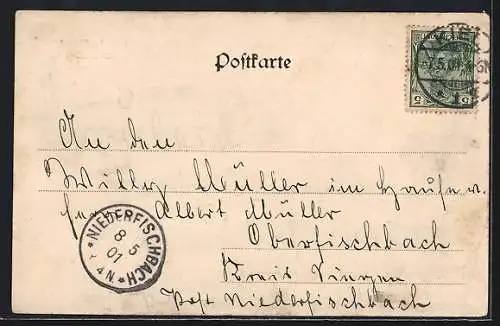 Postkarte
7.5.01
5 5
An den
Willy Müller im Hause v.
Albert Müller
Oberfischbach
Kreis Siegen
Post Niederfischbach
*NIEDERFISCHBACH*
8 5
01
N